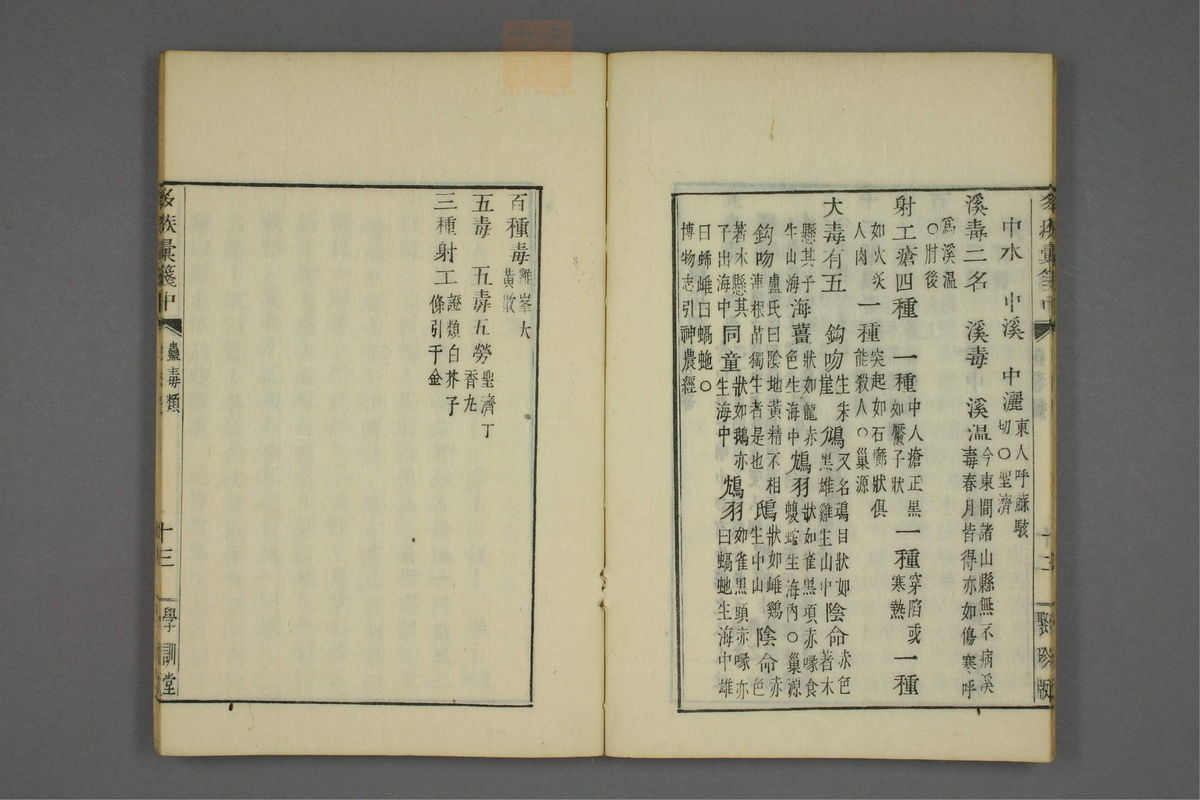 中水　中溪　中灑東人呼蘇駭切○聖濟
溪毒二名　溪毒中　溪溫今東間諸山縣無不病溪毒春月皆得亦如傷寒呼
為溪溫○肘後
射工瘡四種　一種中人瘡正黑如黶子狀一種穿陷或寒熱一種
如火灸人肉一種突起如石癤狀俱能殺人○巢源
大毒有五　鈎吻生朱崖鴆又名鴆日狀如黑雄雞生山中陰命赤色著木
懸其子生山海海薑狀如龍赤色生海中鴆羽狀如雀黑項赤喙食蝮蛇生海內○巢源
鈎吻盧氏曰陰地黃精不相連根苗獨生者是也鴆狀如雌鷄生中山陰命赤色
著木懸其子出海中同童狀如鵝亦生海中鴆羽如雀黑頭赤喙亦曰蝺虵生海中雄
曰蛖雌曰蝺虵○
博物志引神農經
聚珍版
百種毒雞峯大黃散
五毒　五毒五勞聖濟丁香丸
三種射工證類白芥子條引千金
蠱毒類
十三
學訓堂